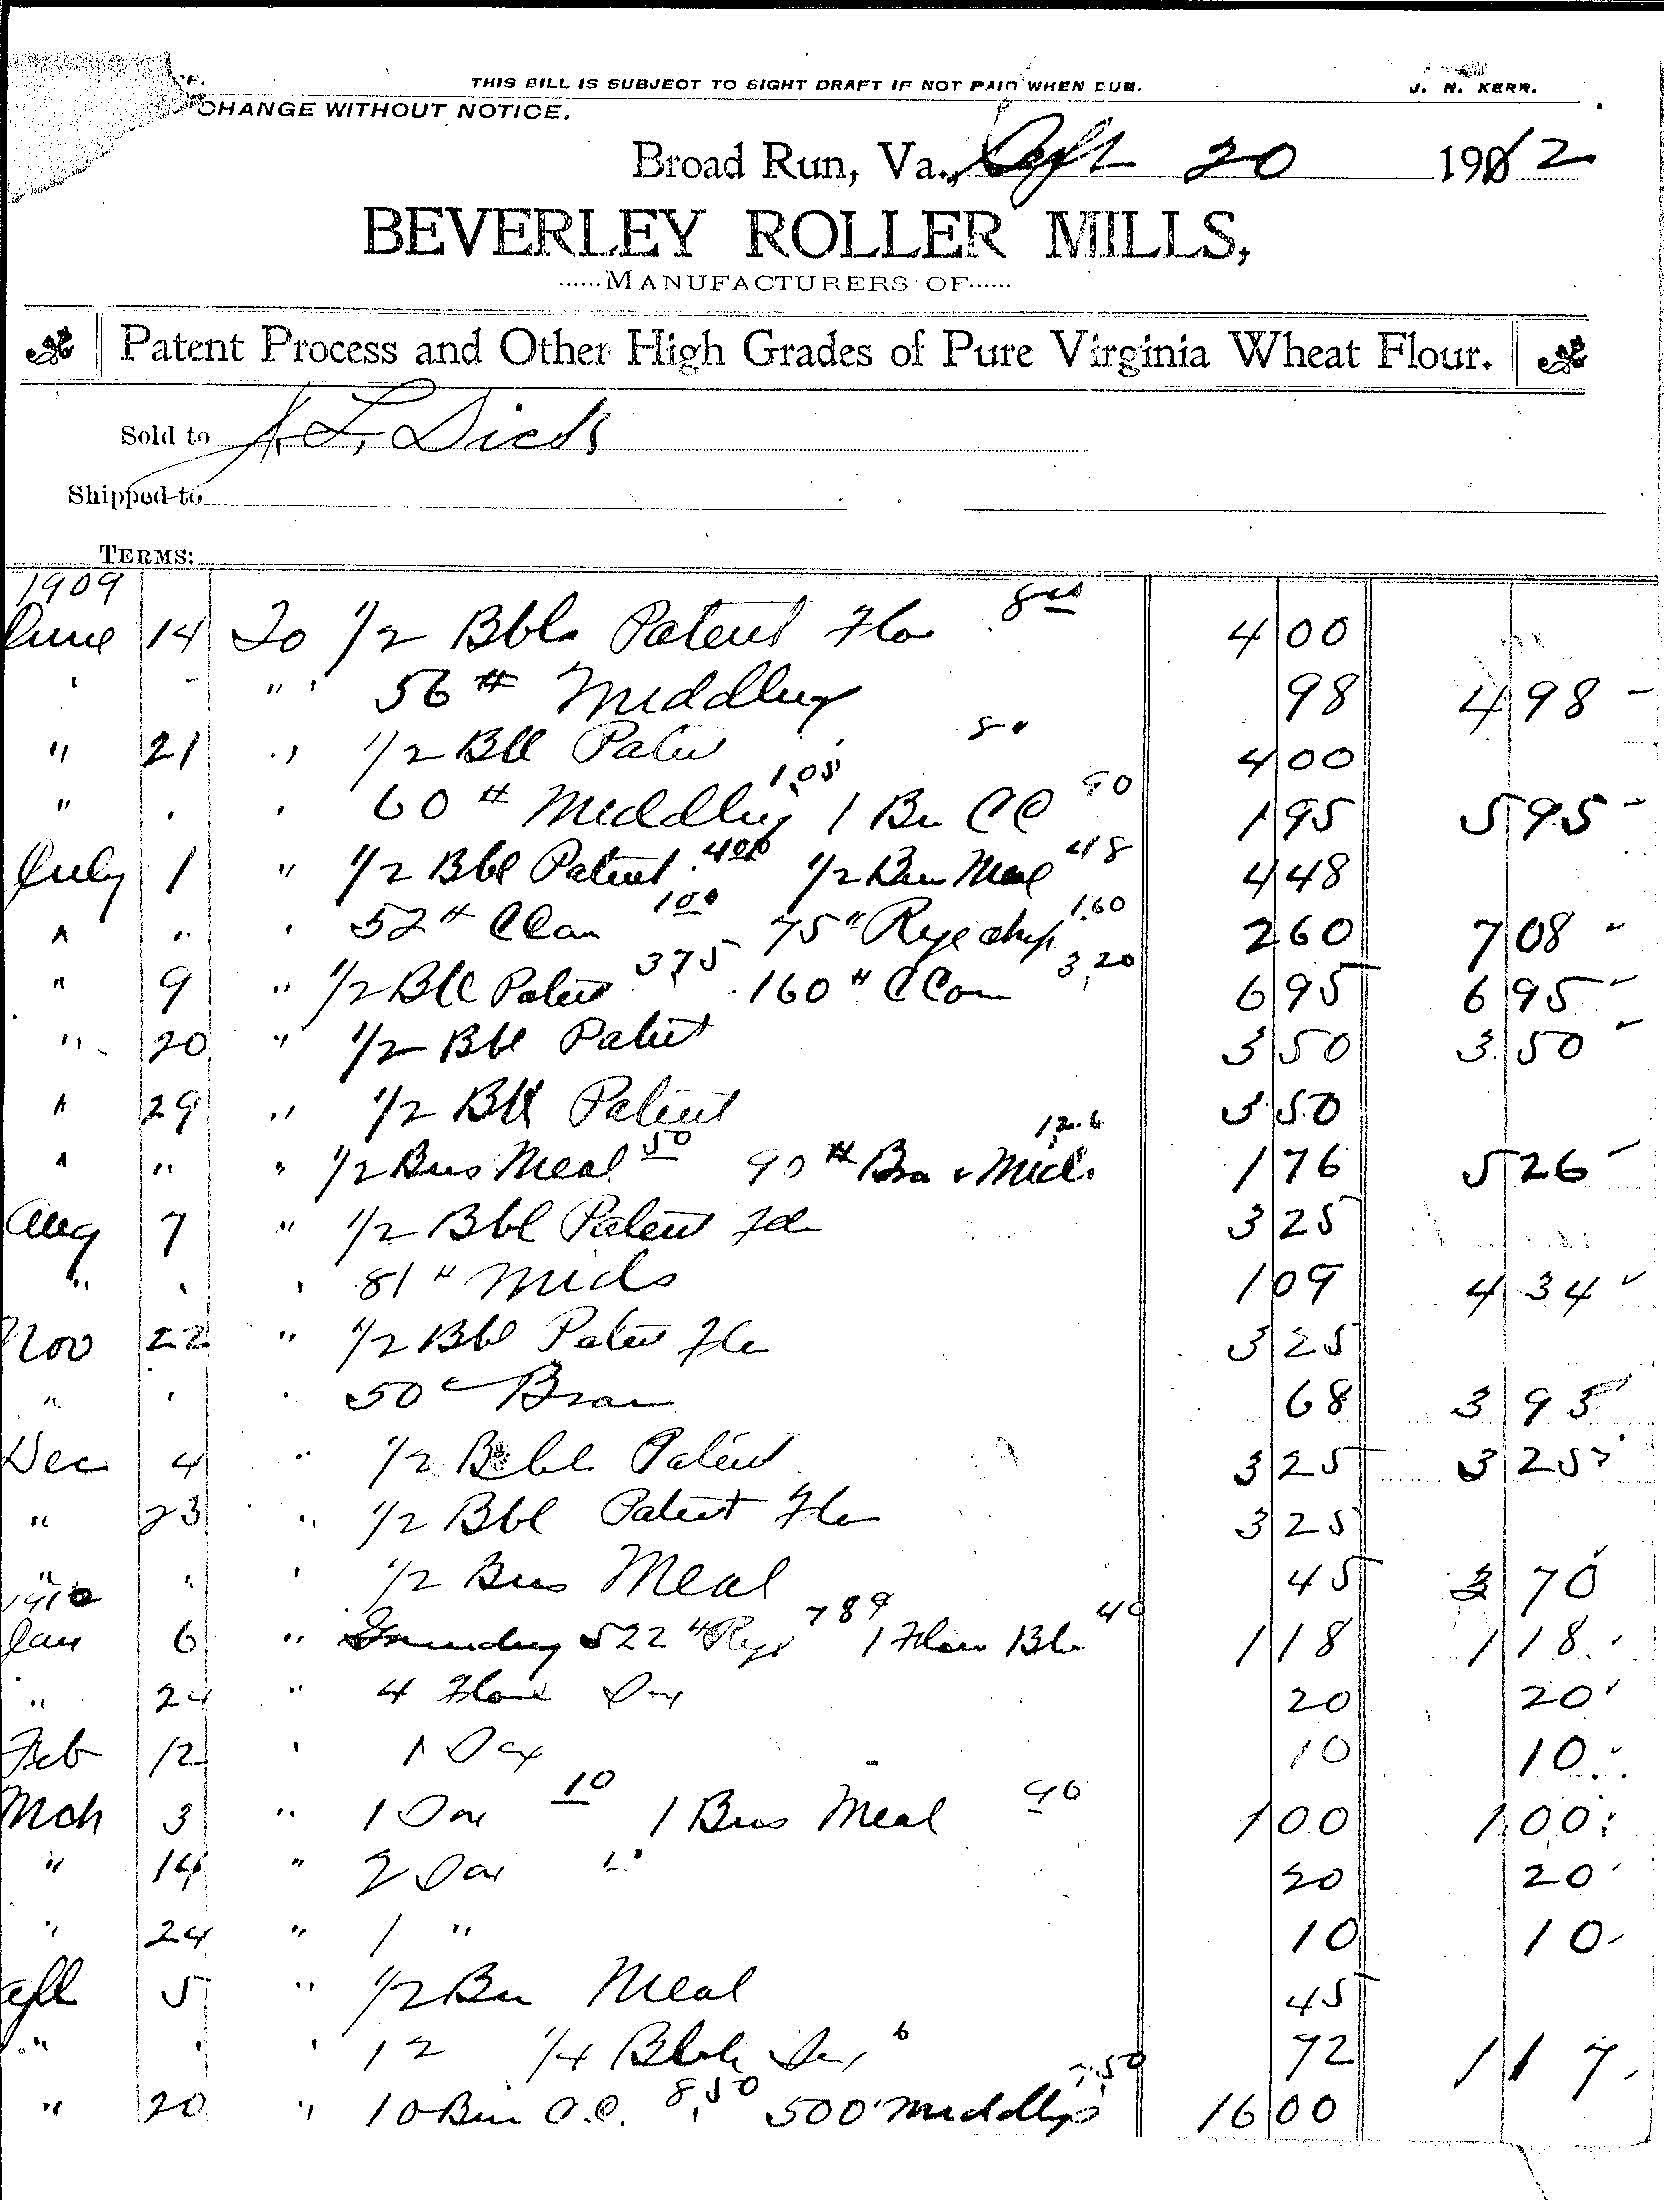 THIS BILL IS SUBJECT TO SIGHT DRAFT IF NOT PAID WHEN DUE. J. N. KERR.
CHANGE WITHOUT NOTICE.
Broad Run, Va., Sept 20 1912
BEVERLEY ROLLER MILLS,
......MANUFACTURERS OF......
Patent Process and Other High Grades of Pure Virginia Wheat Flour.
Sold to J. L. Dicks
Shipped to
TERMS:
1909
June 14 To 1/2 Bbls Patent Flo 8 00 4 00
" " 56 # Middlings 98 4 98
" 21 " 1/2 Bbl Paten 8 00 4 00
" " " 60 # Middling 1.05 1 Bu CC 90 1 95 5 95
July 1 " 1/2 Bbl Patent 4 00 1/2 Bus Meal 48 4 48
" " " 52 # C Corn 1 00 75 # Rye chop 1.60 2 60 7 08
" 9 " 1/2 Bbl Patent 3 75 160 # C Corn 3,20 6 95 6 95
" 20 " 1/2 Bbl Patent 3 50 3 50
" 29 " 1/2 Bbl Patent 3 50
" " " 1/2 Bus Meal 50 90 # Bra & Mids 1 26 1 76 5 26
Aug 7 " 1/2 Bbl Patent Flo 3 25
" " " 81 # Mids 1 09 4 34
Nov 22 " 1/2 Bbl Patent Flo 3 25
" " " 50 Bran 68 3 93
Dec 4 " 1/2 Bbl Patent 3 25 3 25
" 23 " 1/2 Bbl Patent Flo 3 25
" " " 1/2 Bus Meal 45 3 70
1910
Jan 6 " 522 # Rye 789 1 Flour Bbl 40 1 18 1 18
" 24 " 4 Flour Sax 20 20
Feb 12 " 1 Sax 10 10
Mch 3 " 1 Sax 10 1 Bus Meal 90 1 00 1 00
" 14 " 2 Sax " 20 20
" 24 " 1 " 10 10
Apl 5 " 1/2 Bu Meal 45
" " " 12 1/4 Bbl Sax 6 72 1 17
" 20 " 10 Bu C.C. 8,50 500 Middlings 7.50 16 00